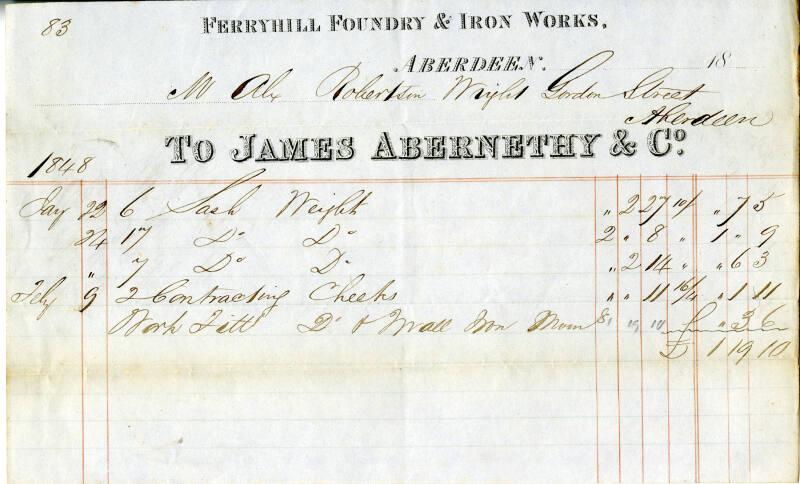 83
FERRYHILL FOUNDRY & IRON WORKS,
ABERDEEN. 18
Mr Alex Robertson Wright Gordon Street
Aberdeen
TO JAMES ABERNETHY & Co.
1848
Jay 22 6 Sash Weight " 2 27 10/ " 7 5
24 17 Do Do 2 " 8 " 1 " 9
" 7 Do Do " 2 14 " " 6 3
Feby 9 2 Contracting Cheeks " " 11 16/4 " 1 11
Work Fitt Do & Mall Iron " 3 6
£ 1 19 10